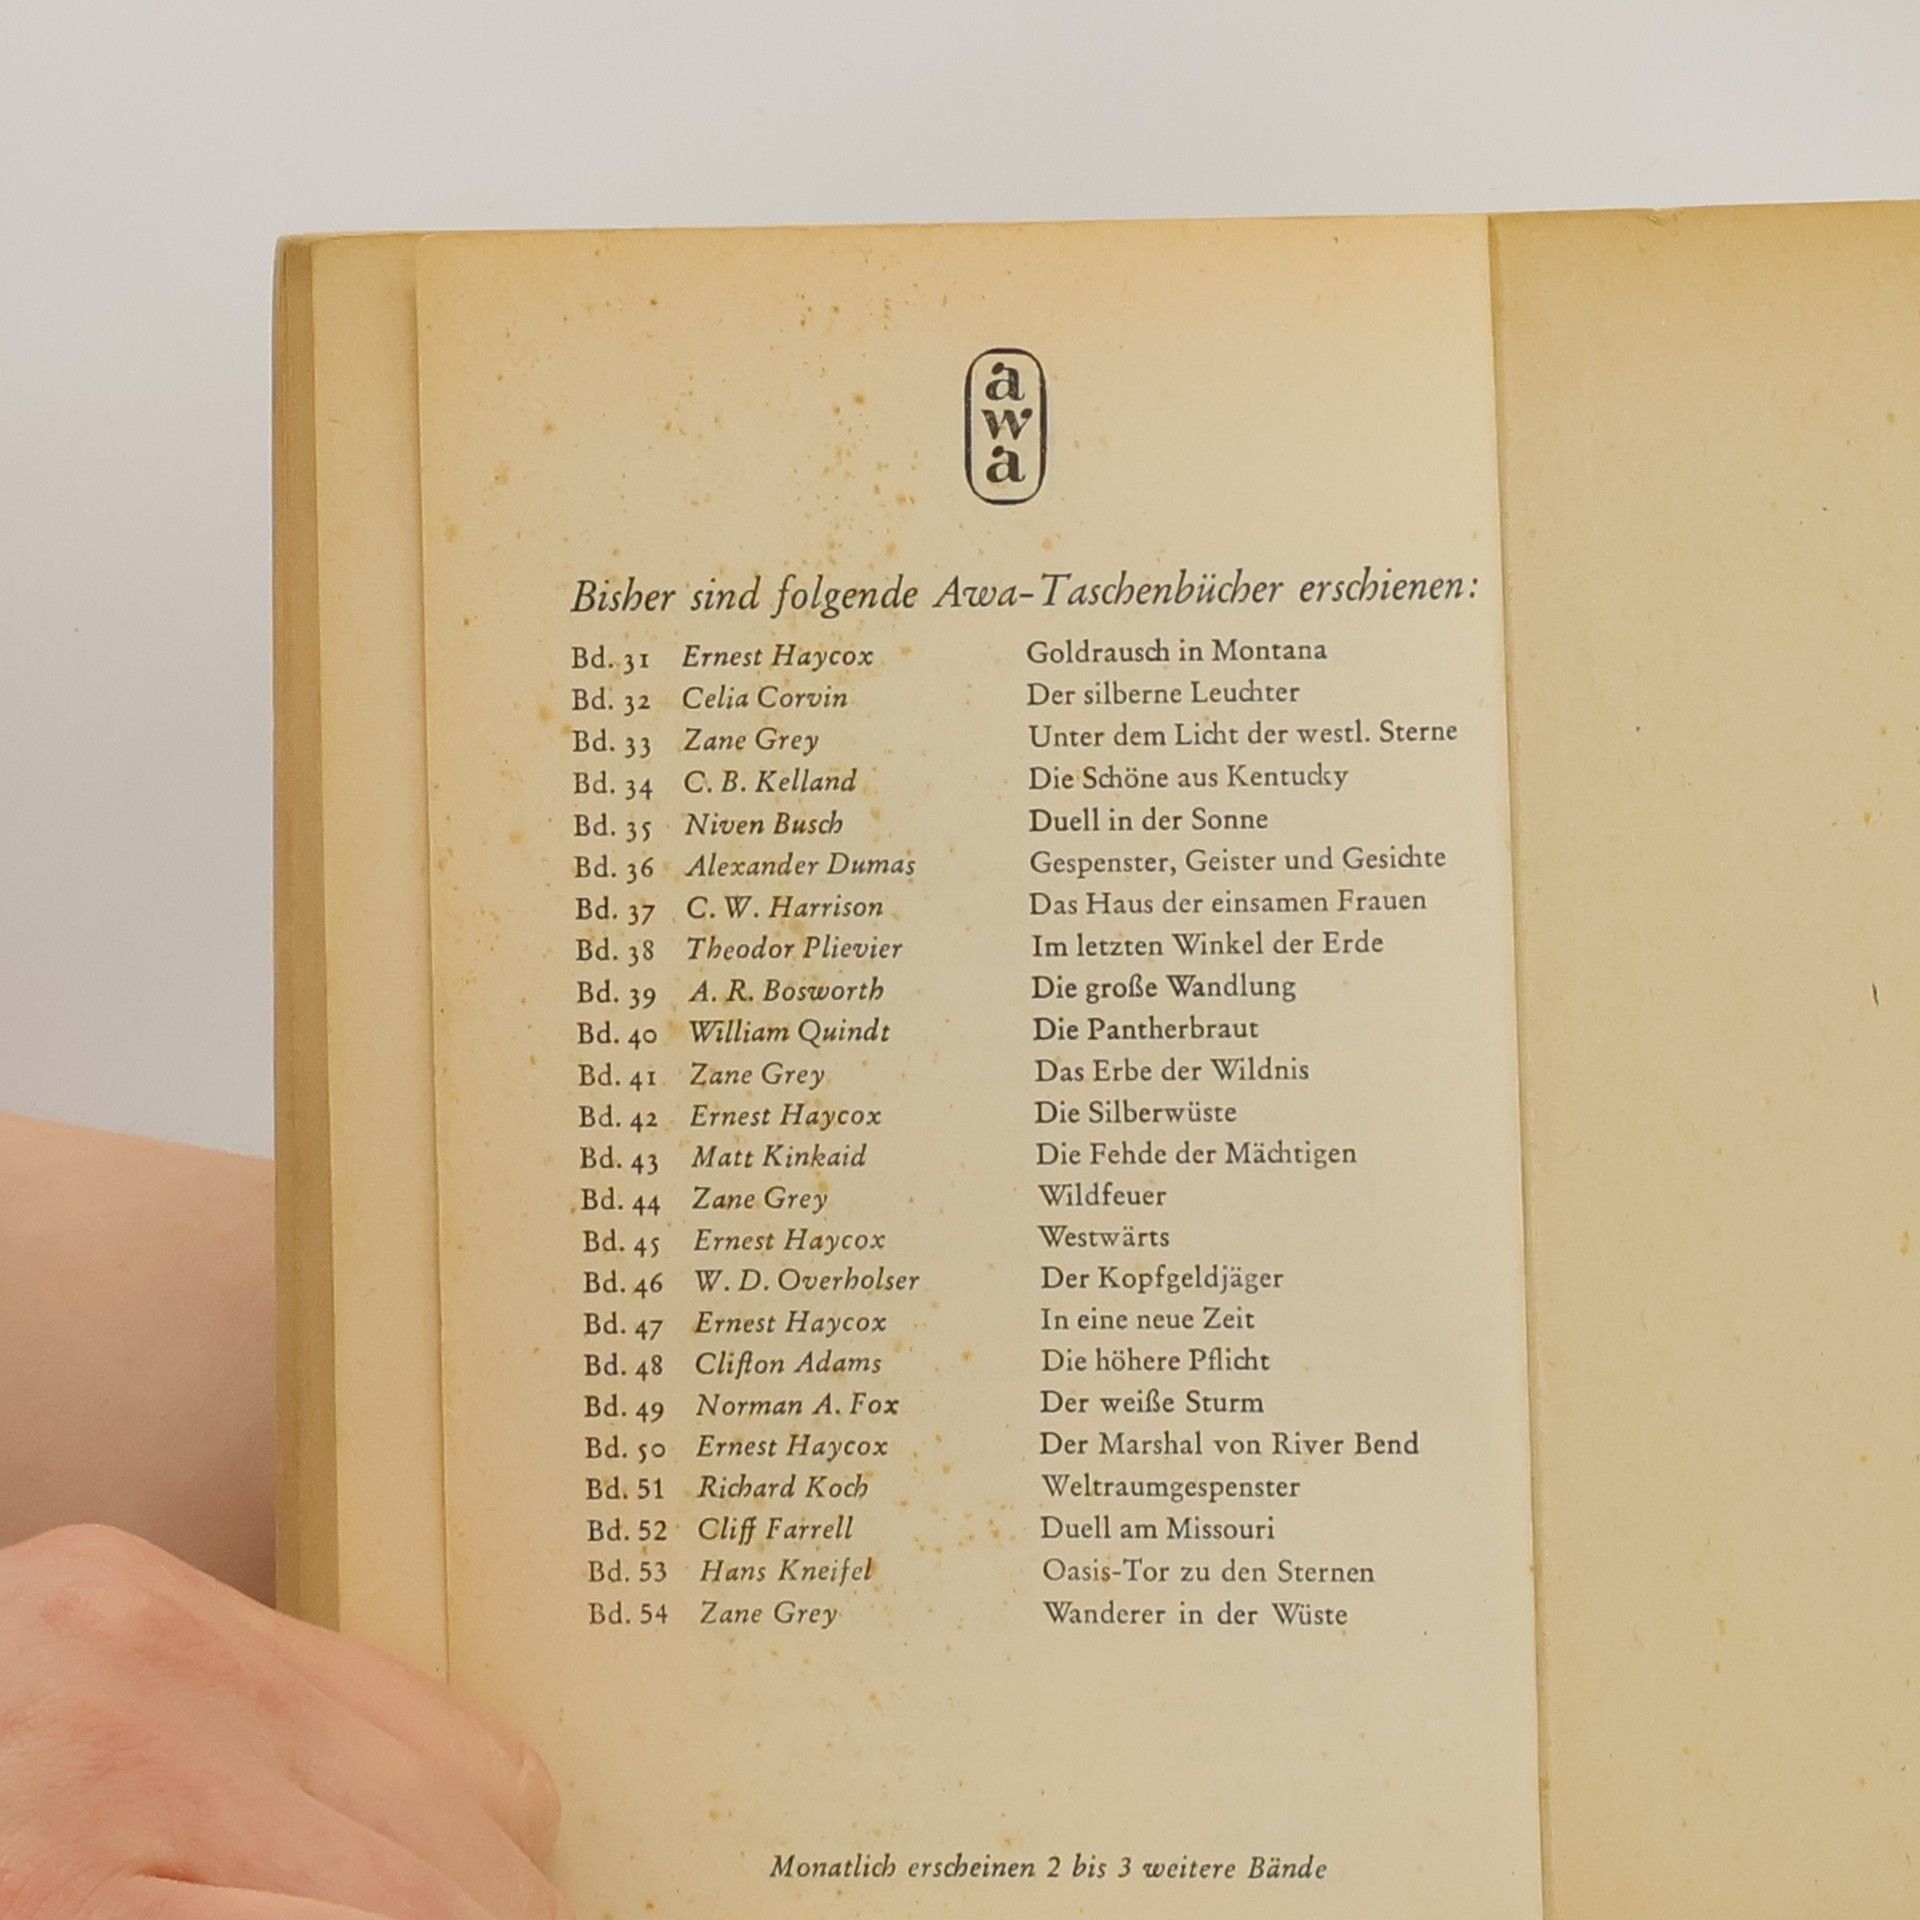 a
w
a
Bisher sind folgende Awa-Taschenbücher erschienen:
Bd. 31 Ernest Haycox Goldrausch in Montana
Bd. 32 Celia Corvin Der silberne Leuchter
Bd. 33 Zane Grey Unter dem Licht der westl. Sterne
Bd. 34 C. B. Kelland Die Schöne aus Kentucky
Bd. 35 Niven Busch Duell in der Sonne
Bd. 36 Alexander Dumas Gespenster, Geister und Gesichte
Bd. 37 C. W. Harrison Das Haus der einsamen Frauen
Bd. 38 Theodor Plievier Im letzten Winkel der Erde
Bd. 39 A. R. Bosworth Die große Wandlung
Bd. 40 William Quindt Die Pantherbraut
Bd. 41 Zane Grey Das Erbe der Wildnis
Bd. 42 Ernest Haycox Die Silberwüste
Bd. 43 Matt Kinkaid Die Fehde der Mächtigen
Bd. 44 Zane Grey Wildfeuer
Bd. 45 Ernest Haycox Westwärts
Bd. 46 W. D. Overholser Der Kopfgeldjäger
Bd. 47 Ernest Haycox In eine neue Zeit
Bd. 48 Clifton Adams Die höhere Pflicht
Bd. 49 Norman A. Fox Der weiße Sturm
Bd. 50 Ernest Haycox Der Marshal von River Bend
Bd. 51 Richard Koch Weltraumgespenster
Bd. 52 Cliff Farrell Duell am Missouri
Bd. 53 Hans Kneifel Oasis-Tor zu den Sternen
Bd. 54 Zane Grey Wanderer in der Wüste
Monatlich erscheinen 2 bis 3 weitere Bände